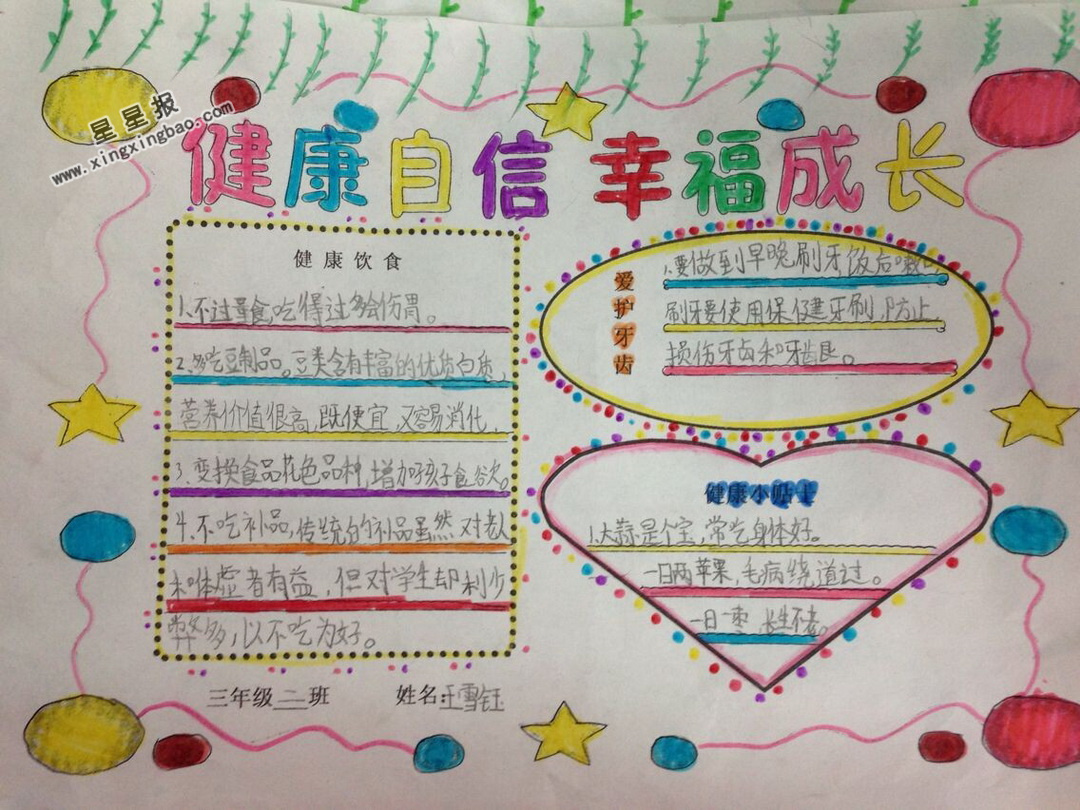 星星报
www.xingxingbao.com
健康自信 幸福成长
健康饮食
1.不过量食,吃得过多会伤胃。
2.多吃豆制品。豆类含有丰富的优质白质,
营养价值很高,既便宜,又容易消化,
3.变换食品花色品种,增加孩子食欲。
4.不吃补品,传统的补品虽然对老人
和体虚者有益,但对学生却利少
弊多,以不吃为好。
三年级二班 姓名:王雪钰
爱护牙齿
1.要做到早晚刷牙饭后漱口
刷牙要使用保健牙刷,防止
损伤牙齿和牙龈。
健康小贴士
1.大蒜是个宝,常吃身体好。
一日两苹果,毛病绕道过。
一日一枣,长生不老。